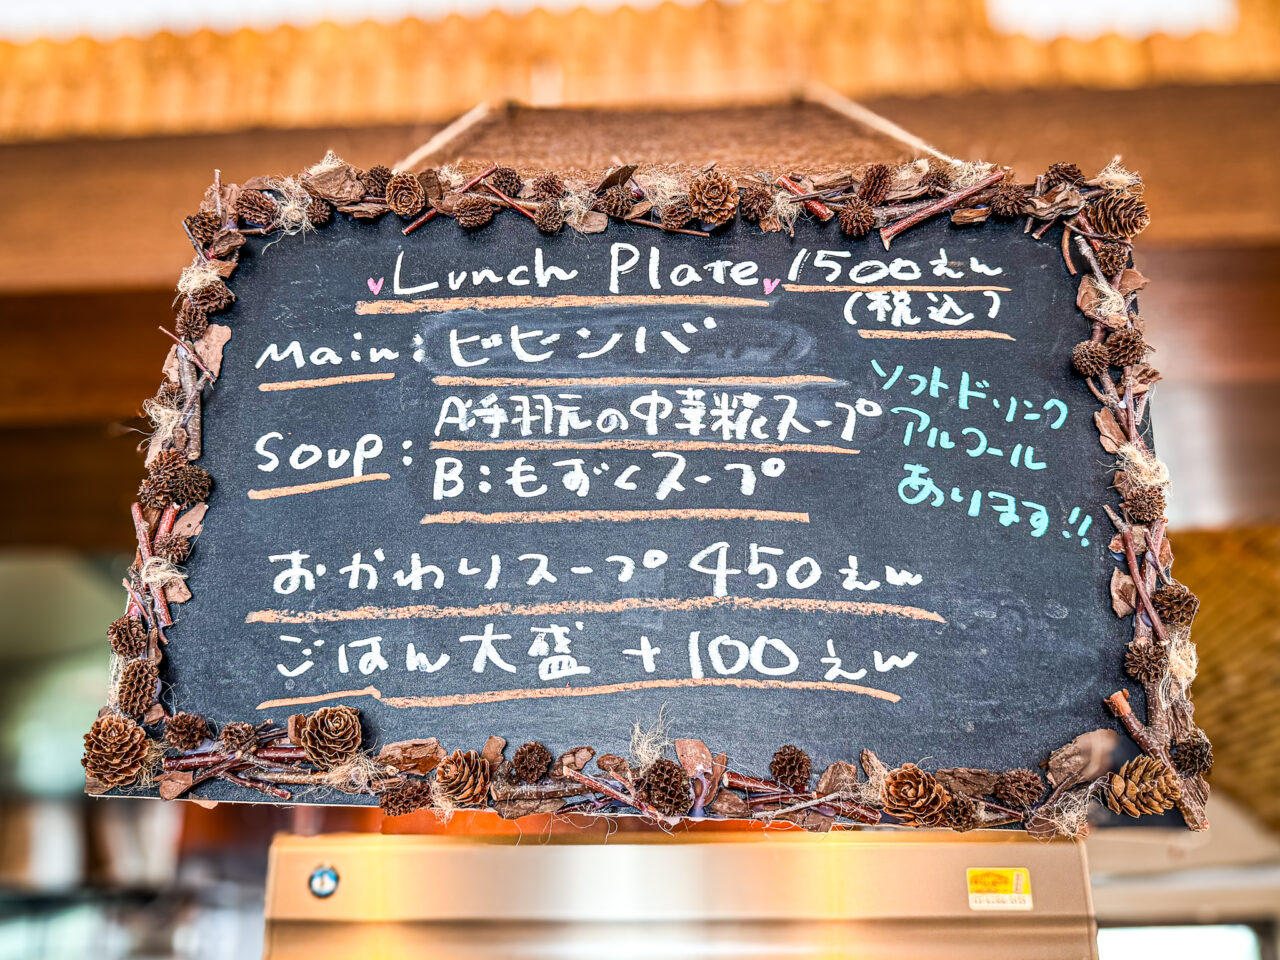 Lunch Plate 1500えん
(税込)
Main: ビビンバ
Soup: A:浄羽元の中華糀スープ
B:もずくスープ
ソフトドリンク
アルコール
あります!!
おかわりスープ 450えん
ごはん大盛 +100えん